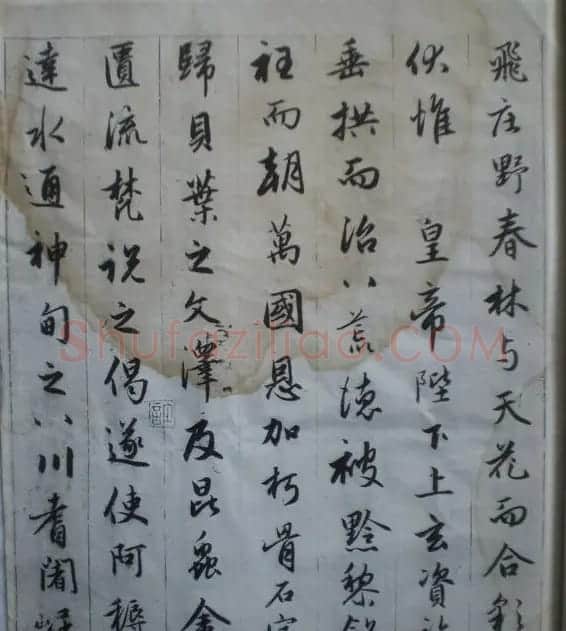 飛庄野春林与天花而合彩
伏惟 皇帝陛下上玄資
垂拱而治八荒德被黔黎斂
衽而朝萬國恩加朽骨石室
歸貝葉之文澤及昆蟲金
匱流梵說之偈遂使阿耨
達水通神甸之八川耆闍崛
Shufaziliao.COM